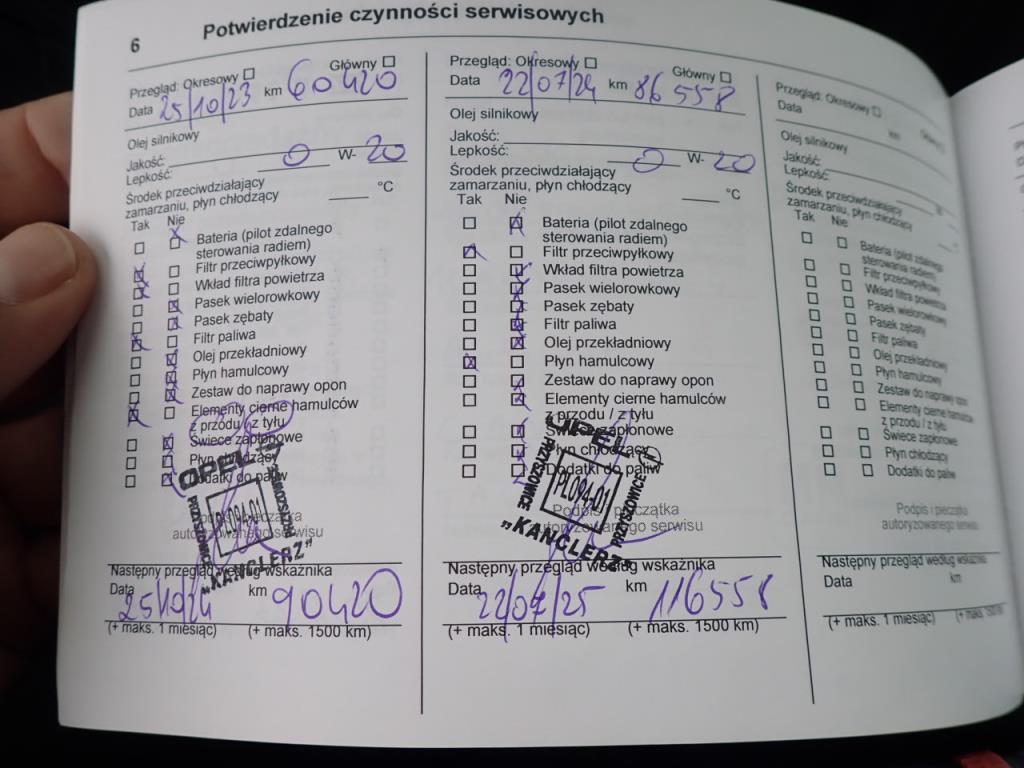 6
Potwierdzenie czynności serwisowych
Przegląd: Okresowy Główny
Data 25/10/23 km 60420
Olej silnikowy
Jakość:
Lepkość: 0 W- 20
Środek przeciwdziałający
zamarzaniu, płyn chłodzący °C
Tak Nie
Bateria (pilot zdalnego
sterowania radiem)
Filtr przeciwpyłkowy
Wkład filtra powietrza
Pasek wielorowkowy
Pasek zębaty
Filtr paliwa
Olej przekładniowy
Płyn hamulcowy
Zestaw do naprawy opon
Elementy cierne hamulców
z przodu / z tyłu
Świece zapłonowe
Płyn chłodzący
Dodatki do paliw
OPEL
PRZYSZOWICE
PL094-01
PRZYSZOWICE
"KANCLERZ"
Podpis i pieczątka
autoryzowanego serwisu
Następny przegląd według wskaźnika
Data 25/10/24 km 90420
(+ maks. 1 miesiąc) (+ maks. 1500 km)
Przegląd: Okresowy Główny
Data 22/07/24 km 86558
Olej silnikowy
Jakość:
Lepkość: 0 W- 20
Środek przeciwdziałający
zamarzaniu, płyn chłodzący °C
Tak Nie
Bateria (pilot zdalnego
sterowania radiem)
Filtr przeciwpyłkowy
Wkład filtra powietrza
Pasek wielorowkowy
Pasek zębaty
Filtr paliwa
Olej przekładniowy
Płyn hamulcowy
Zestaw do naprawy opon
Elementy cierne hamulców
z przodu / z tyłu
Świece zapłonowe
Płyn chłodzący
Dodatki do paliw
OPEL
PRZYSZOWICE
PL094-01
PRZYSZOWICE
"KANCLERZ"
Podpis i pieczątka
autoryzowanego serwisu
Następny przegląd według wskaźnika
Data 22/07/25 km 116558
(+ maks. 1 miesiąc) (+ maks. 1500 km)
Przegląd: Okresowy Główny
Data km
Olej silnikowy
Jakość:
Lepkość: W-
Środek przeciwdziałający
zamarzaniu, płyn chłodzący
Tak Nie
Bateria (pilot zdalnego
sterowania radiem)
Filtr przeciwpyłkowy
Wkład filtra powietrza
Pasek wielorowkowy
Pasek zębaty
Filtr paliwa
Olej przekładniowy
Płyn hamulcowy
Zestaw do naprawy opon
Elementy cierne hamulców
z przodu / z tyłu
Świece zapłonowe
Płyn chłodzący
Dodatki do paliw
Podpis i pieczątka
autoryzowanego serwisu
Następny przegląd według wskaźnika
Data km
(+ maks. 1 miesiąc) (+ maks. 1500 km)